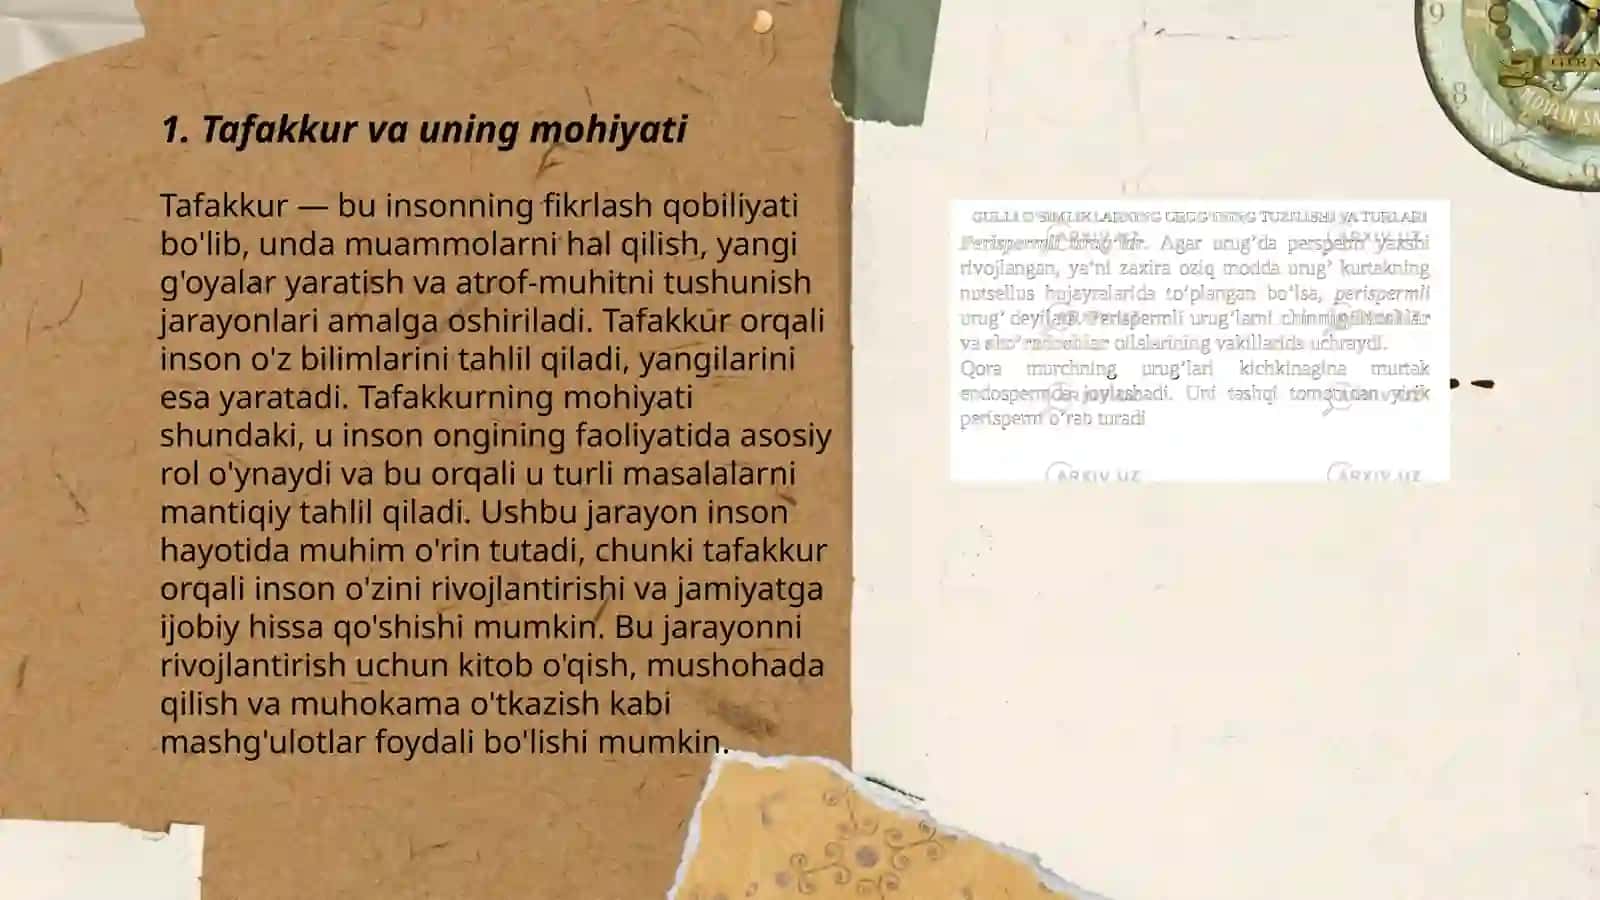 1. Tafakkur va uning mohiyati
Tafakkur — bu insonning fikrlash qobiliyati
bo'lib, unda muammolarni hal qilish, yangi
g'oyalar yaratish va atrof-muhitni tushunish
jarayonlari amalga oshiriladi. Tafakkur orqali
inson o'z bilimlarini tahlil qiladi, yangilarini
esa yaratadi. Tafakkurning mohiyati
shundaki, u inson ongining faoliyatida asosiy
rol o'ynaydi va bu orqali u turli masalalarni
mantiqiy tahlil qiladi. Ushbu jarayon inson
hayotida muhim o'rin tutadi, chunki tafakkur
orqali inson o'zini rivojlantirishi va jamiyatga
ijobiy hissa qo'shishi mumkin. Bu jarayonni
rivojlantirish uchun kitob o'qish, mushohada
qilish va muhokama o'tkazish kabi
mashg'ulotlar foydali bo'lishi mumkin.
GULLI O'SIMLIKLARNING URUG'INING TUZILISHI VA TURLARI
Perispermli urug'lar. Agar urug'da perisperm yaxshi
rivojlangan, ya'ni zaxira oziq modda urug' kurtakning
nutsellus hujayralarida to'plangan bo'lsa, perispermli
urug' deyiladi. Perispermli urug'larni
va oilalarining vakillarida uchraydi.
Qora murchning urug'lari kichkinagina murtak
endospermda joylashadi. Uni tashqi tomonidan yirik
perisperm o'rab turadi
ARXIV.UZ ARXIV.UZ
9
8
MOULIN
6